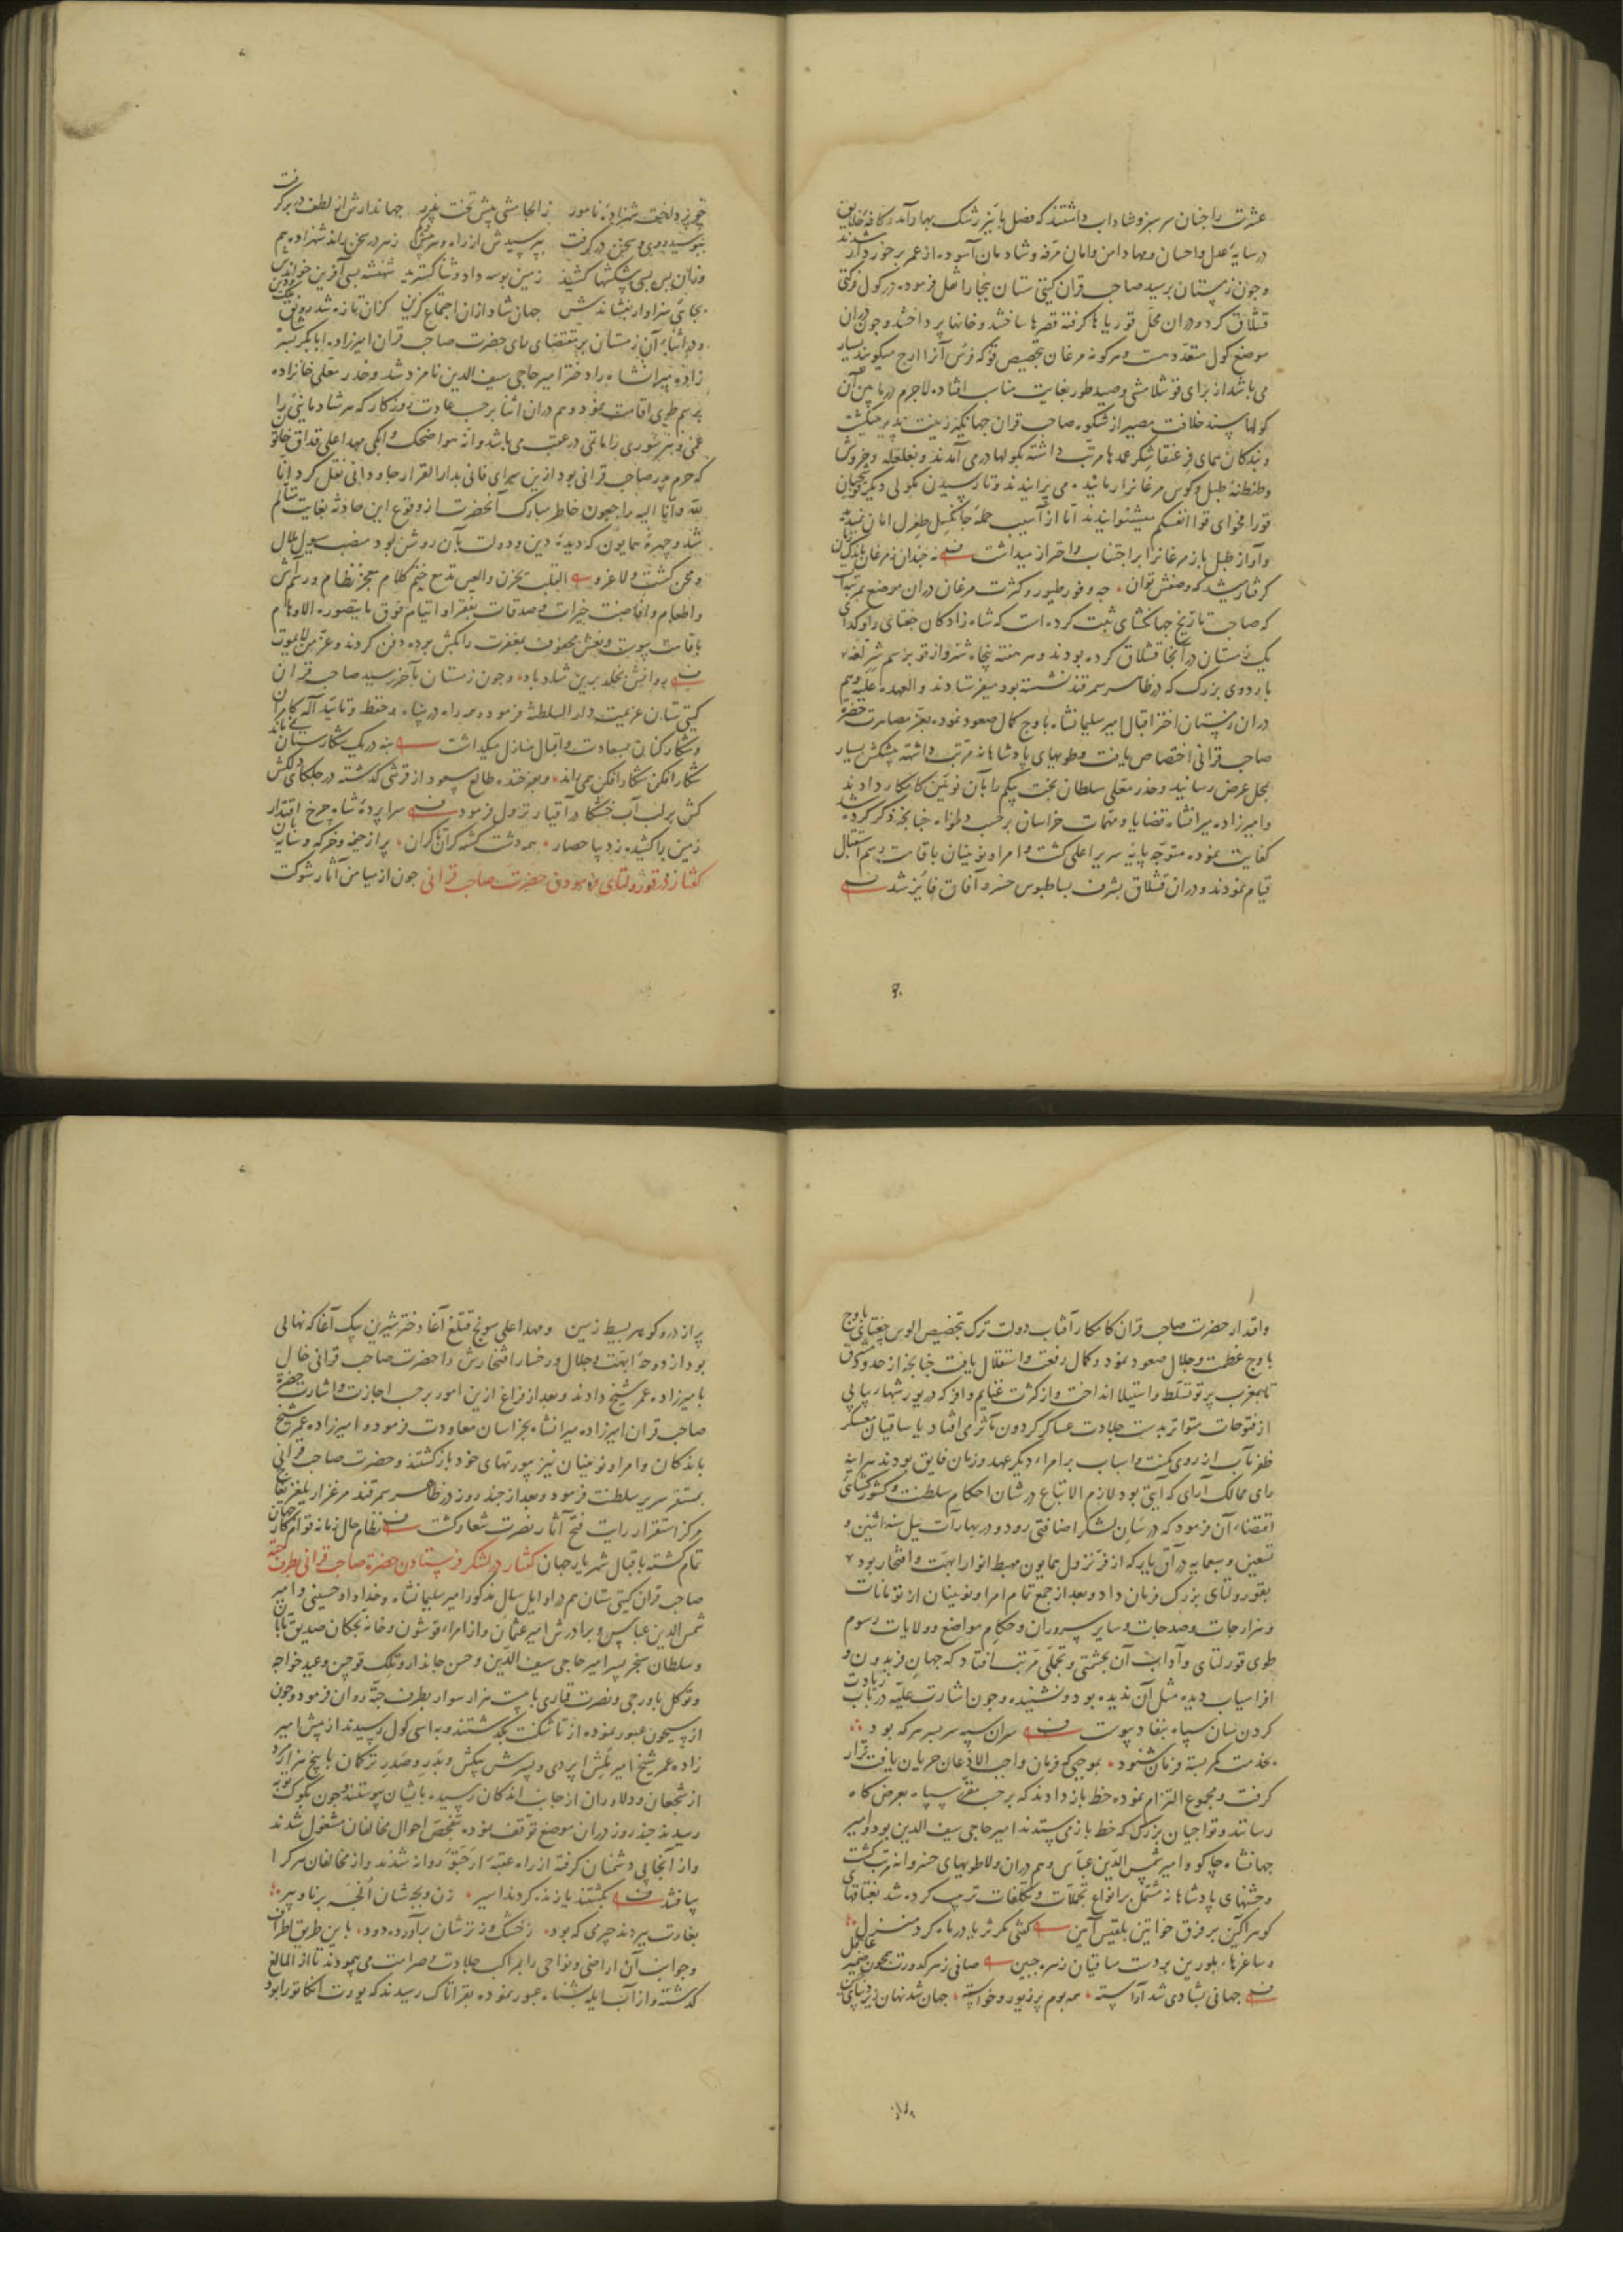 عشرت را چنان سرسبز و شاداب داشتند که فصل پائیز رشک بهار آمد و کافه خلایق
در سایه عدل و احسان و مهاد امن و امان مرفه و شادمان آسوده از عمر برخوردار شدند
و چون زمستان برسید صاحب قران گیتی ستان بخارا شل فرموده در کول فرکتی
قشلاق کرد و دران محل قوریا ها گرفته قصرها ساختند و خانها پرداختند و چون دران
موضع کول متعدد هست و هر گونه مرغان بتخصیص قو که فرس آنرا ارج میکویند بسیار
می باشد از برای قوشلامشی و صید طور بغایت مناسب افتاده لاجرم در مابین آن
کولها پسند خلافت مصیر از شکوه صاحب قران جهانکیر زینت پذیر میکشت
و بندکان همای فر عنقا شکر عمدها مرتب داشته بکولها در می آمدند و بغلغله و خروش
و طنطنه طبل و کوس مرغانرا رمانیده می پرانیدند و تا رسیدن بکولی دیگر
قورا فحوای قوا انفسکم میشنوانیدند اما از آسیب حمله جانکسل طغرل امان
و آواز طبل باز مرغانرا بر اجتناب و احتراز میداشت نه چندان ز مرغان
گرفتار شد که وصفش توان چه وفور طیور و کثرت مرغان دران موضع بمرتبه
که صاحب تاریخ جهانکشای ثبت کرده است که شاه زادکان جغتای و اوکدای
یک زمستان در آنجا قشلاق کرده بودند و هر هفته پنجاه شتروار قو برسم شرلغه
باردوی بزرگ که در ظاهر سمرقند نشسته بود میفرستادند و العهده علیه و هم
دران زمستان اختر اقبال امیر سلیمانشاه باوج کمال صعود نموده بعز مصاهرت حضرت
صاحب قرانی اختصاص یافت و طویهای پادشاهانه مرتب داشته پیشکش بسیار
بمحل عرض رسانید و خدر معلی سلطان بخت بیکم را بآن نوئین کامکار دادند
و امیرزاده میرانشاه قضایا و مهمات خراسان برحسب دلخواه چنانچه ذکر کرده شد
کفایت نموده متوجه پایه سریر اعلی کشت و امرا و نوئینان باقامت رسم استقبال
قیام نمودند و دران قشلاق بشرف بساط بوس خسرو آفاق فایز شد
چو پرزد دلخت شهزاده نامور ز الجامشی پیش تخت پدر جهاندارش از لطف در بر گرفت
ببوسید روی و سخن در گرفت بپرسیدش از راه و رنج سفر
وزان پس بسی پیشکشها کشید زمین بوسه داد و ثنا گسترید شهنشه بسی آفرین خواندش
بجای سزاوار بنشاندش جهان شادازان اجتماع گزین کزان تازه شد رونق
و در اثناء آن زمستان بر مقتضای رای حضرت صاحب قران امیرزاده ابابکر پسر
زاده میرانشاه را دختر امیر حاجی سیف الدین نامزد شد و خدر معلی خانزاده
برسم طوی اقامت نمود و هم دران اثنا برحسب عادت روزکار که هر شادمانی را
غمی و هر سوری را ماتمی در عقب می باشد وانه هو اضحک و ابکی مهد اعلی قداق خاتون
که حرم پدر صاحب قرانی بود ازین سرای فانی بدار القرار جاودانی نقل کرد انا
لله و انا الیه راجعون خاطر مبارک آنحضرت از وقوع این حادثه بغایت متالم
شد و چهره همایون که دیده دین و دولت بآن روشن بود مصب سیول ملال
و محن کشت و لا غرو القلب یحزن والعین تدمع ختم کلام معجز نظام و رسم آش
و اطعام و افاضت خیرات و صدقات بفقرا و ایتام فوق ما یتصوره الاوهام
باقامت پیوست و نعش محفوف بمغفرت را بکش برده دفن کردند و عز من لا یموت
روانش بخلد برین شاد باد و چون زمستان بآخر رسید صاحب قران
گیتی ستان عزیمت دار السلطنة فرمود و همه راه در پناه حفظ و تائید اله کامران
و شکار کنان بسعادت و اقبال منازل میکذاشت نه در یک شکارستان
شکار افکن شکار افکن همی راند و بفرخنده طالع مسعود از قرشی گذشته در جلکای دلکش
کش بر لب آب خشکا در آقیار نزول فرمود سراپرده شاه چرخ اقتدار
زمین را کشیده زدیبا حصار همه دشت کشه کران تا کران پر از خیمه و خرکه و سایبان
گفتار در قورولتای فرمودن حضرت صاحب قرانی چون از میامن آثار شوکت
و اقدار حضرت صاحب قران کامکار آفتاب دولت ترک بتخصیص الوس چغتائی باوج
باوج عظمت و جلال صعود نمود و کمال رفعت و استقلال یافت چنانچه از حدود مشرق
تا بمغرب پرتو تسلط و استیلا انداخت و از کثرت غنایم وافر که در یورشهای پیاپی
از فتوحات متواتر بدست جلادت عساکر کردون مآثر می افتاد یا ساقیان معسکر
ظفر مآب از روی مکنت و اسباب بر امراء دیگر عهد و زمان فایق بودند هر آینه
رای ممالک آرای که آیتی بود لازم الاتباع در شان احکام سلطنت و کشورکشائی
اقتضاء آن فرمود که در سان لشکر اضافتی رود و در بهار آت ئیل سنه اثنین و
تسعین و سبعمایه در آق یار که از فر نزول همایون مهبط انوار ابهت و افتخار بود
بقورولتای بزرگ فرمان داد و بعد از جمع تمام امرا و نوئینان از تومانات
و هزارجات و صدجات و سایر سروران و حکام مواضع و ولایات رسوم
طوی قورلتای و آداب آن بحشمتی و تجملی مرتب افتاد که جهان فریدون و
افراسیاب دیده مثل آن ندیده بود و نشنیده و چون اشارت علیه در باب زیادت
کردن سان سپاه بنفاذ پیوست سران سپه سربسر هر که بود
بخدمت کمر بسته فرمان شنود بموجبی که فرمان واجب الاذعان جریان یافت قرار
گرفت و مجموع التزام نموده خط باز دادند که برحسب مقرر سپاه بعرض کاه
رسانند و تواجیان بزرگ که خط باز می ستدند امیر حاجی سیف الدین بود و امیر
جهانشاه جاکو و امیر شمس الدین عباس و هم دران ولا طویهای خسروانه مرتب کشت
و جشنهای پادشاهانه مشتمل بر انواع تجملات و تکلفات ترتیب کرده شد بغتاقها
گوهر آگین بر فرق خواتین بلقیس آیین کفتی مکر ثریا در ماه کرد منزل
و ساغرهاء بلورین بر دست ساقیان زهره جبین صافی ز هر کدورت همچون ضمیر عاقل
جهانی بشادی شد آراسته همه بوم پر زیور و خواسته جهان شد نهان زیر دیبای چین
پر از در و گوهر بسیط زمین و مهد اعلی سونج قتلغ آغا دختر شیرین بیک آغا که نهالی
بود از دوحه ابهت و جلال و رخسار افتخارش را حضرت صاحب قرانی خال
بامیرزاده عمر شیخ دادند و بعد از فراغ ازین امور برحسب اجازت و اشارت حضرت
صاحب قران امیرزاده میرانشاه بخراسان معاودت فرمود و امیرزاده عمر شیخ
باندکان و امرا و نوئینان نیز بیورتهای خود بازگشتند و حضرت صاحب قرانی
بمستقر سریر سلطنت فرمود و بعد از چند روز در ظاهر سمرقند مرغزار یلغز یغاج
مرکز استقرار رایت فتح آثار نصرت شعار کشت نظام حال زمانه قوام کار جهان
تمام کشته باقبال شهریار جهان گفتار در لشکر فرستادن حضرت صاحب قرانی بطرف جته
صاحب قران گیتی ستان هم در اوایل سال مذکور امیر سلیمانشاه و خداداد حسینی و امیر
شمس الدین عباس و برادرش امیر عثمان و از امراء قوشون و خانه بچکان صدیق تابان
و سلطان سنجر پسر امیر حاجی سیف الدین و حسن جاندار و تلک قوجین و عید خواجه
و توکل باورجی و نصرت قماری با بیست هزار سوار بطرف جته روان فرمود و چون
از سیحون عبور نموده از تاشکنت بگذشتند و به اسی کول رسیدند از پیش امیر
زاده عمر شیخ امیر ملش اپردی و پسرش بیکش و بدر و صدر ترکان با پنج هزار مرد
از شجعان و دلاوران از جانب اندکان رسیده بایشان پیوستند و چون بکوک توبه
رسیدند چند روز دران موضع توقف نموده بتفحص احوال مخالفان مشغول شدند
و از آنجا پی دشمنان گرفته از راه عقبه ارجتو روانه شدند و از مخالفان هر کرا
یافتند بکشتند یا زنده کردند اسیر زن و بچه شان آنچه برنا و پیر
بغارت ببردند چیزی که بود ز خشک و تر شان برآورده دود باین طریق اطراف
و جوانب آن اراضی و نواحی را بمراکب جلادت و صرامت می پیمودند تا از المالغ
گذشته و از آب ایله بشناه عبور نموده بقراتال رسیدند که یورت انکا تورا بود